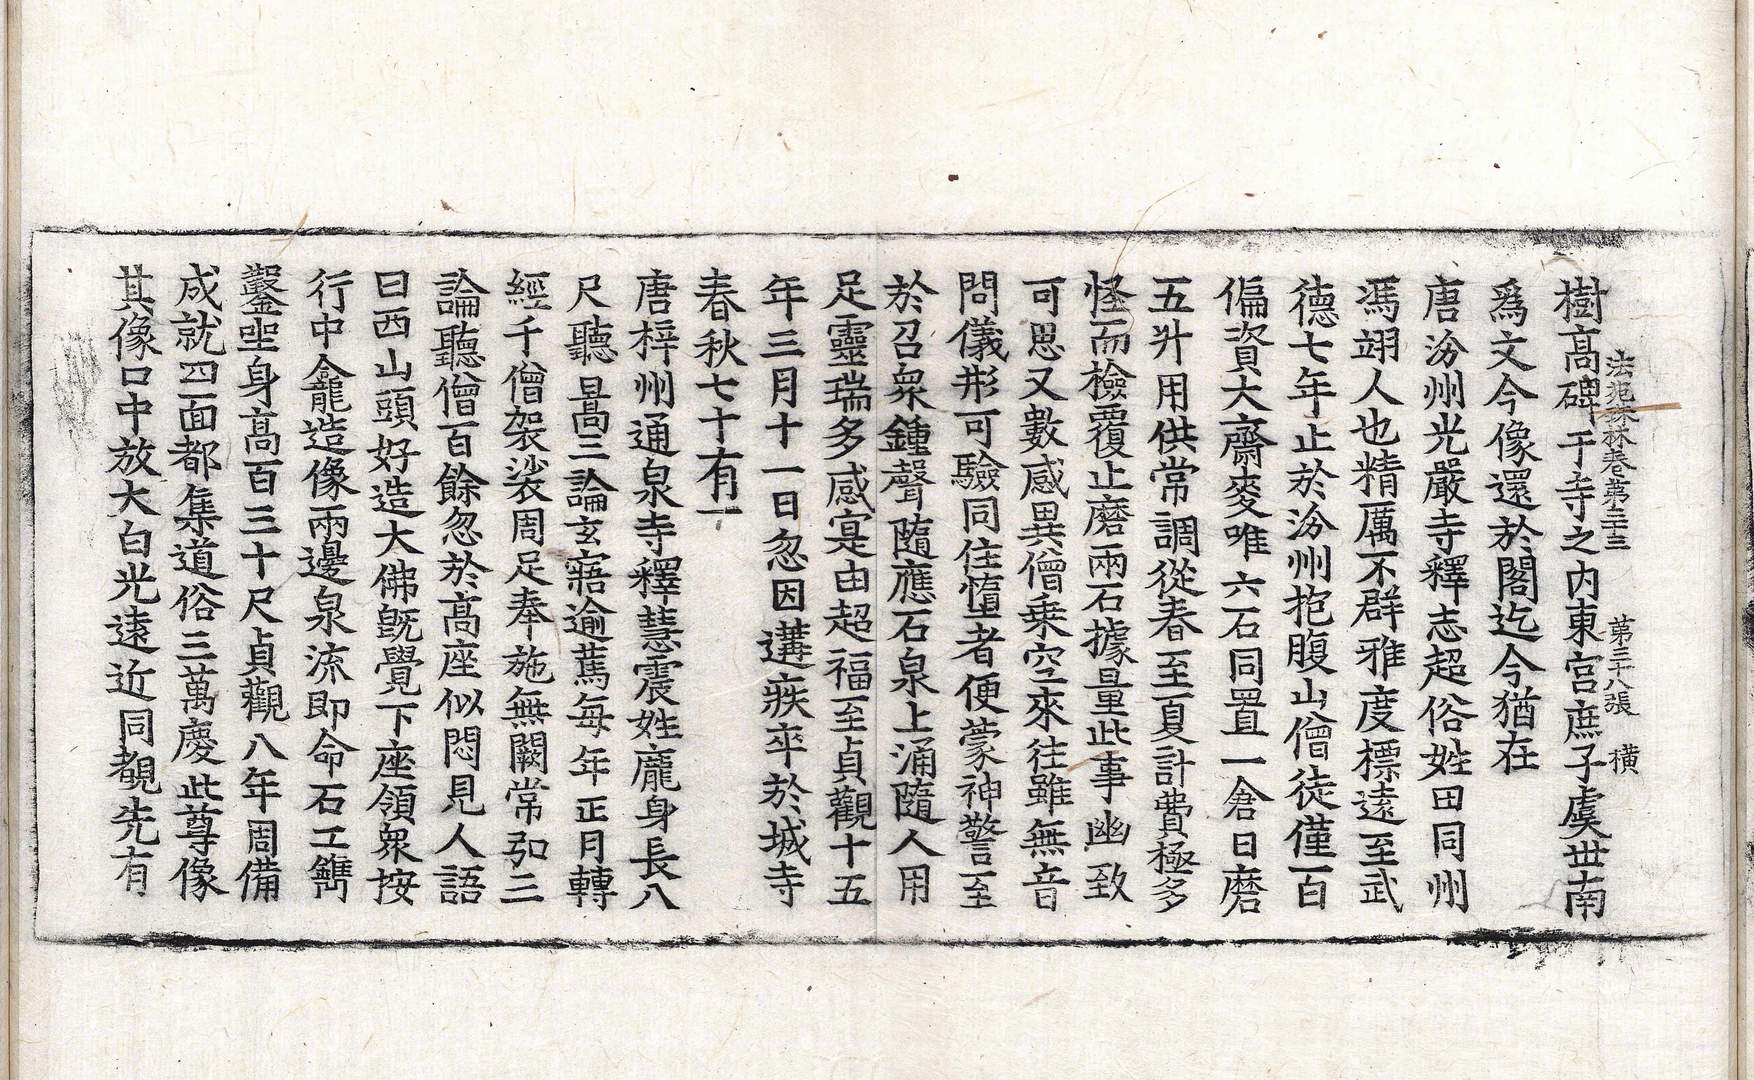 樹高碑于寺之内東宮庶子虞世南
法苑珠林卷第三十三　第三十八張　横
爲文今像還於閣迄今猶在
唐汾州光嚴寺釋志超俗姓田同州
馮翊人也精厲不群雅度標遠至武
德七年止於汾州抱腹山僧徒僅百
偏資大齋麥唯六石同置一倉日磨
五升用供常調從春至夏計費極多
怪而檢覆止磨兩石據量此事幽致
可思又數感異僧乗空來往雖無音
問儀形可驗同住墮者便蒙神警至
於召衆鍾聲隨應石泉上涌隨人用
足靈瑞多感寔由超福至貞觀十五
年三月十一日忽因遘疾卒於城寺
春秋七十有一
唐梓州通泉寺釋慧震姓龐身長八
尺聽暠三論玄寤逾蔫每年正月轉
經千僧袈裟周足奉施無闕常弘三
論聽僧百餘忽於高座似悶見人語
曰西山頭好造大佛旣覺下座領衆按
行中龕造像兩邊泉流即命石工鐫
鑿坐身高百三十尺貞觀八年周備
成就四面都集道俗三萬慶此尊像
其像口中放大白光遠近同覩先有